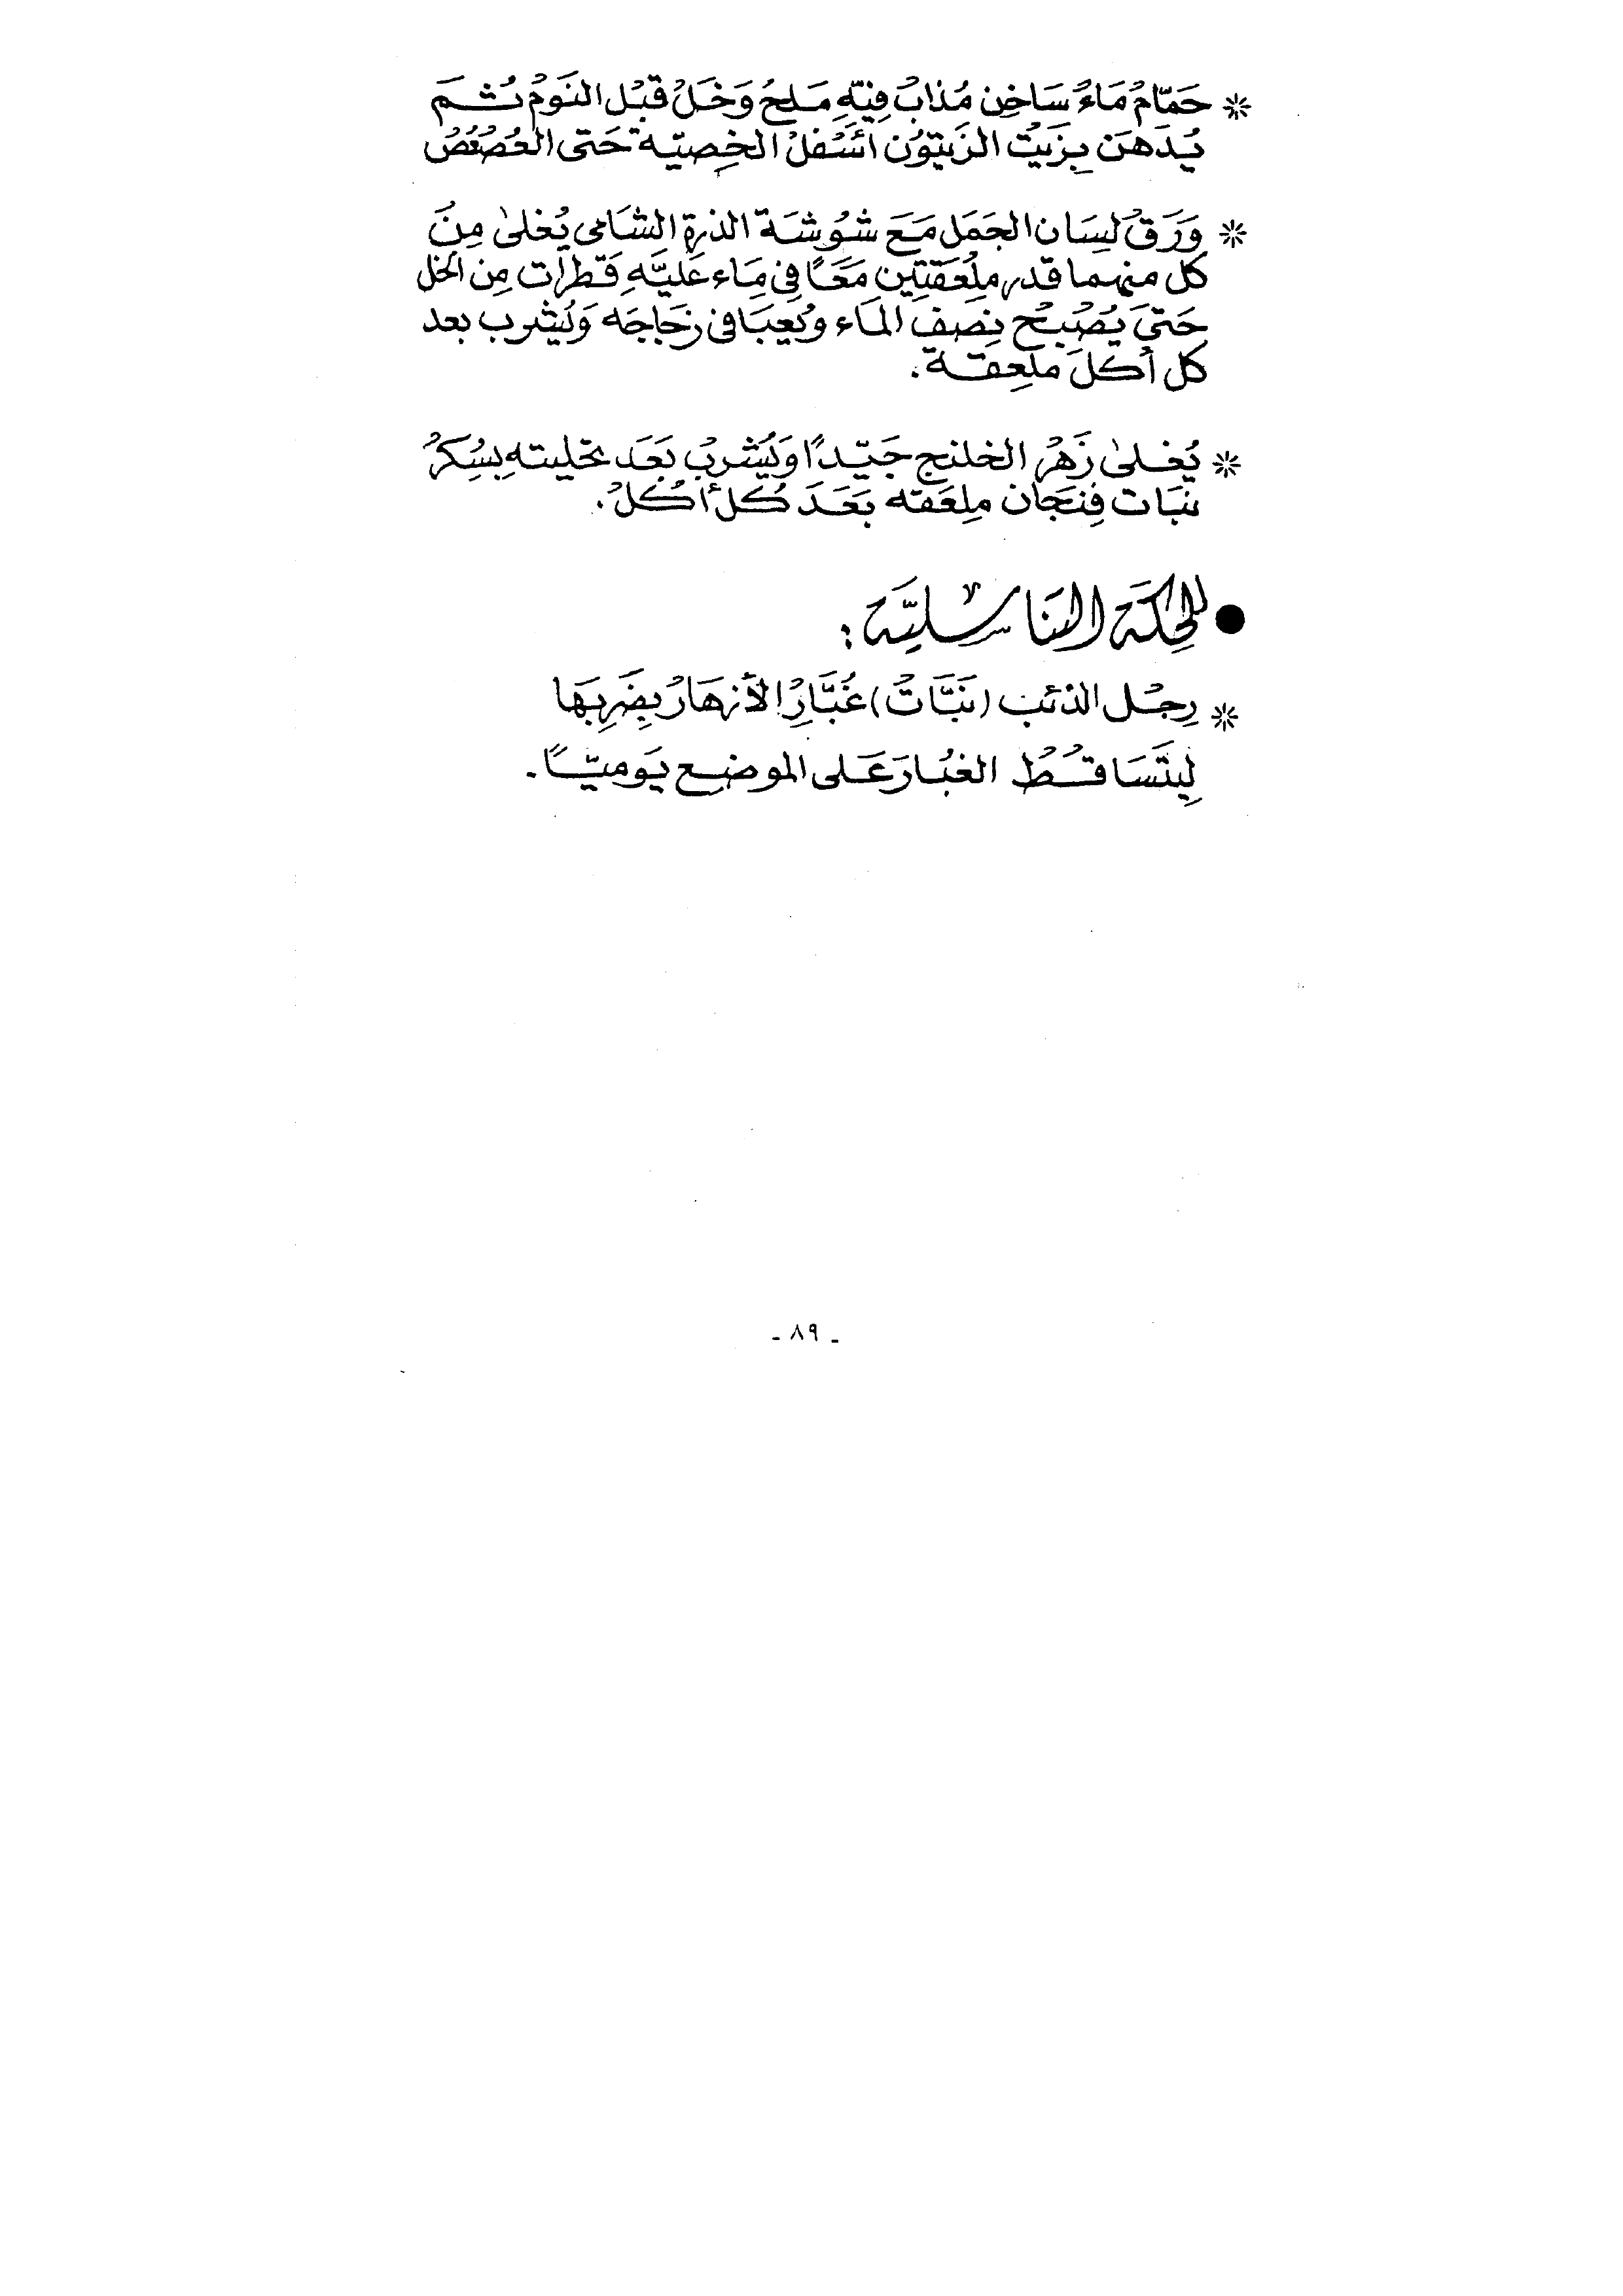 * حَمّامُ مَاءُ سَاخِن مُذابُ فِيَّهِ مَلحُ وَخَلُ قَبُل النَومُ ثُم
يُدَهَن بِزَيتُ الزَيتوُن اسَفلُ الخِصيّة حَتى العُصعُصُ
* وَرَقُ لِسَان الجَمَل مَعَ شوُشَة الذرةِ الشَامى يُغلىٰ مِنَ
كل منهما قدر ملِعَقتِين مَعًا فِى مِاء عَليَّهِ قَطرات مِن الخل
حَتىَ يَصُبحُ نِصف المَاء ويُعبَا فى زجَاجَه وَيُشرب بعد
كل أكلَ ملعِقة .
* يُغلىٰ زَهُر الخلنج جَيّدًا وَيُشربُ بَعَد تحليته بِسُكرُ
نبَات فِنجَان ملِعَقه بَعَدَ كُل أكُلُ .
● للحِكَة التَناسُليَّة :
* رِجُل الذئب (نَبَّاتُ) غُبَّارُ الأزهَارُ بِضَربِهَا
لِيتَسَاقُطُ الغبُارَ عَلى الموضِع يَوميًّا .
- ٨٩ -